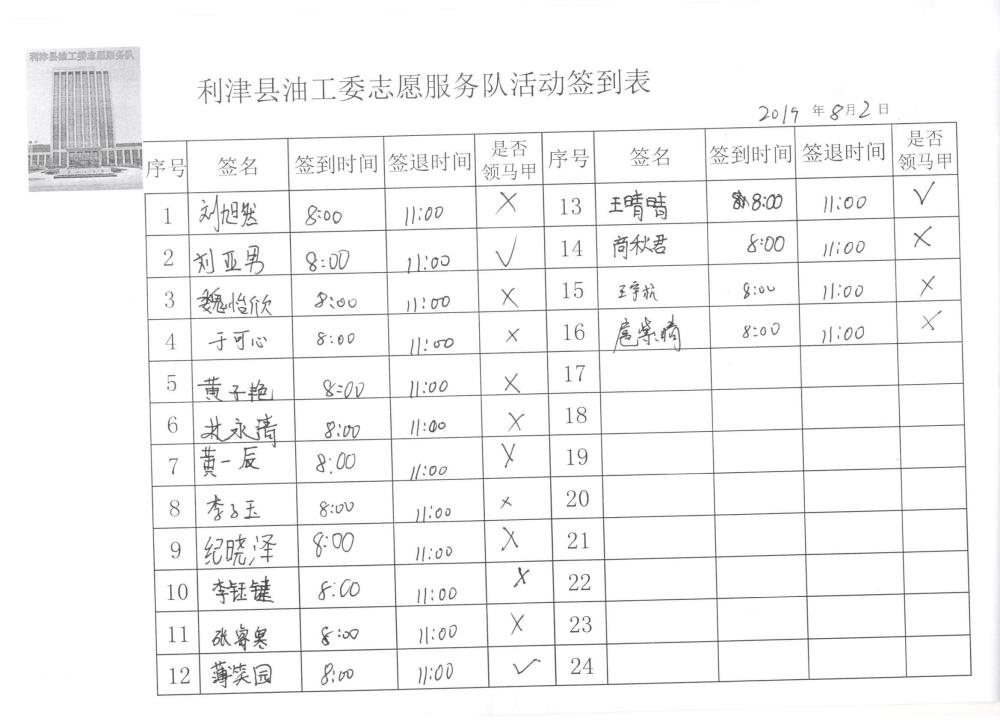 利津县油工委志愿服务队
利津县油工委志愿服务队活动签到表
2019年8月2日
序号 签名 签到时间 签退时间 是否领马甲 序号 签名 签到时间 签退时间 是否领马甲
1 刘旭然 8:00 11:00 × 13 王晴晴 8:00 11:00 ✓
2 刘亚男 8:00 11:00 ✓ 14 商秋君 8:00 11:00 ×
3 魏怡欣 8:00 11:00 × 15 王宇航 8:00 11:00 ×
4 于可心 8:00 11:00 × 16 8:00 11:00 ×
5 黄子艳 8:00 11:00 × 17
6 永清 8:00 11:00 × 18
7 黄一辰 8:00 11:00 × 19
8 李子玉 8:00 11:00 × 20
9 纪晓泽 8:00 11:00 × 21
10 李钰键 8:00 11:00 × 22
11 张睿 8:00 11:00 × 23
12 薄笑园 8:00 11:00 ✓ 24